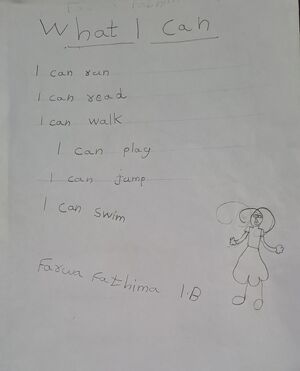 What I Can
I can run
I can read
I can walk
I can play
I can jump
I can swim
Farwa Fathima 1.B